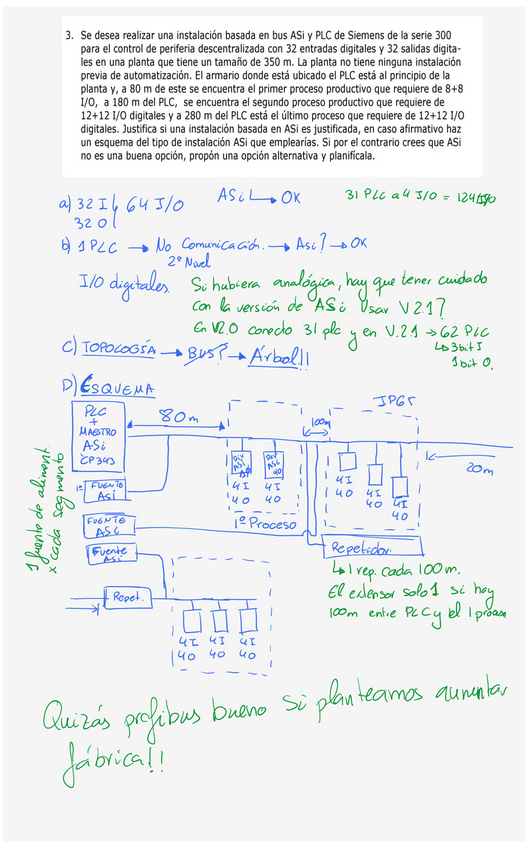 3. Se desea realizar una instalación basada en bus ASi y PLC de Siemens de la serie 300
para el control de periferia descentralizada con 32 entradas digitales y 32 salidas digita-
les en una planta que tiene un tamaño de 350 m. La planta no tiene ninguna instalación
previa de automatización. El armario donde está ubicado el PLC está al principio de la
planta y, a 80 m de este se encuentra el primer proceso productivo que requiere de 8+8
I/O, a 180 m del PLC, se encuentra el segundo proceso productivo que requiere de
12+12 I/O digitales y a 280 m del PLC está el último proceso que requiere de 12+12 I/O
digitales. Justifica si una instalación basada en ASi es justificada, en caso afirmativo haz
un esquema del tipo de instalación ASi que emplearías. Si por el contrario crees que ASi
no es una buena opción, propón una opción alternativa y planifícala.
a) 32 I 64 I/O ASi OK 31 PLC a 4 I/O = 124 I/O
32 O
b) 1 PLC → No Comunicación. → Asi? → OK
2º Nivel
I/O digitales. Si hubiera analógica, hay que tener cuidado
con la versión de ASi. Usar V2.1?
En V2.0 conecto 31 plc y en V.2.1 → 62 PLC
3 bit I
1 bit O.
C) TOPOLOGÍA → BUS? → Árbol!!
D) ESQUEMA
PLC
+
MAESTRO
ASi
CP343
80m
100m
IP65
20m
1º FUENTE
ASi
FUENTE
ASi
Fuente
ASi
1 fuente de aliment.
x cada segmento
4I 4I
4O 4O
1º Proceso
4I 4I 4I
4O 4O 4O
Repetidor.
1 rep. cada 100m.
El extensor solo 1 si hay
100m entre PLC y el 1 proceso
Repet.
4I 4I 4I
4O 4O 4O
Quizás profibus bueno si planteamos aumentar
fábrica!!